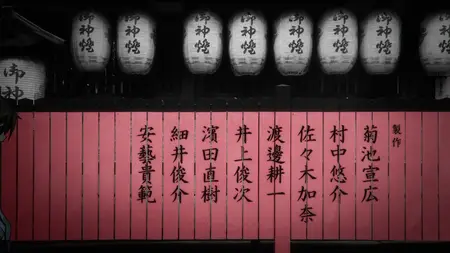 御神燈
御神燈
御神燈
御神燈
御神燈
御神燈
御神燈
御神燈
製作
菊池宣広
村中悠介
佐々木加奈
渡邊耕一
井上俊次
濱田直樹
細井俊介
安藝貴範